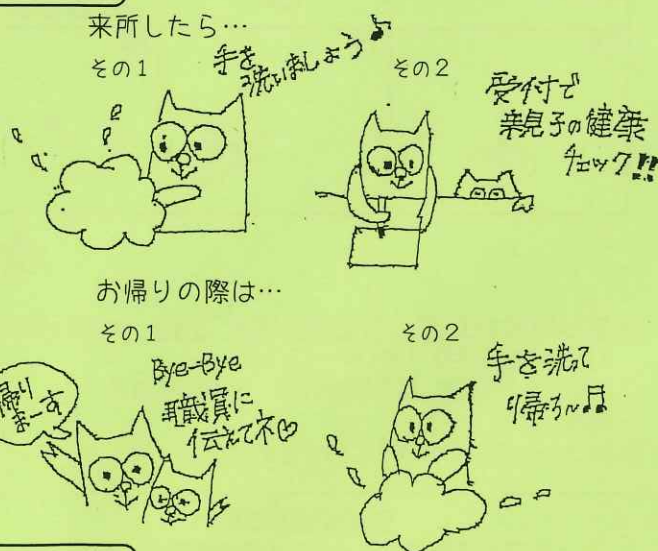 来所したら…
その1
手を
洗いましょう♪
その2
受付で
親子の健康
チェック!!
お帰りの際は…
その1
帰り
まーす
Bye-Bye
職員に
伝えてネ♡
その2
手を洗って
帰る～♫